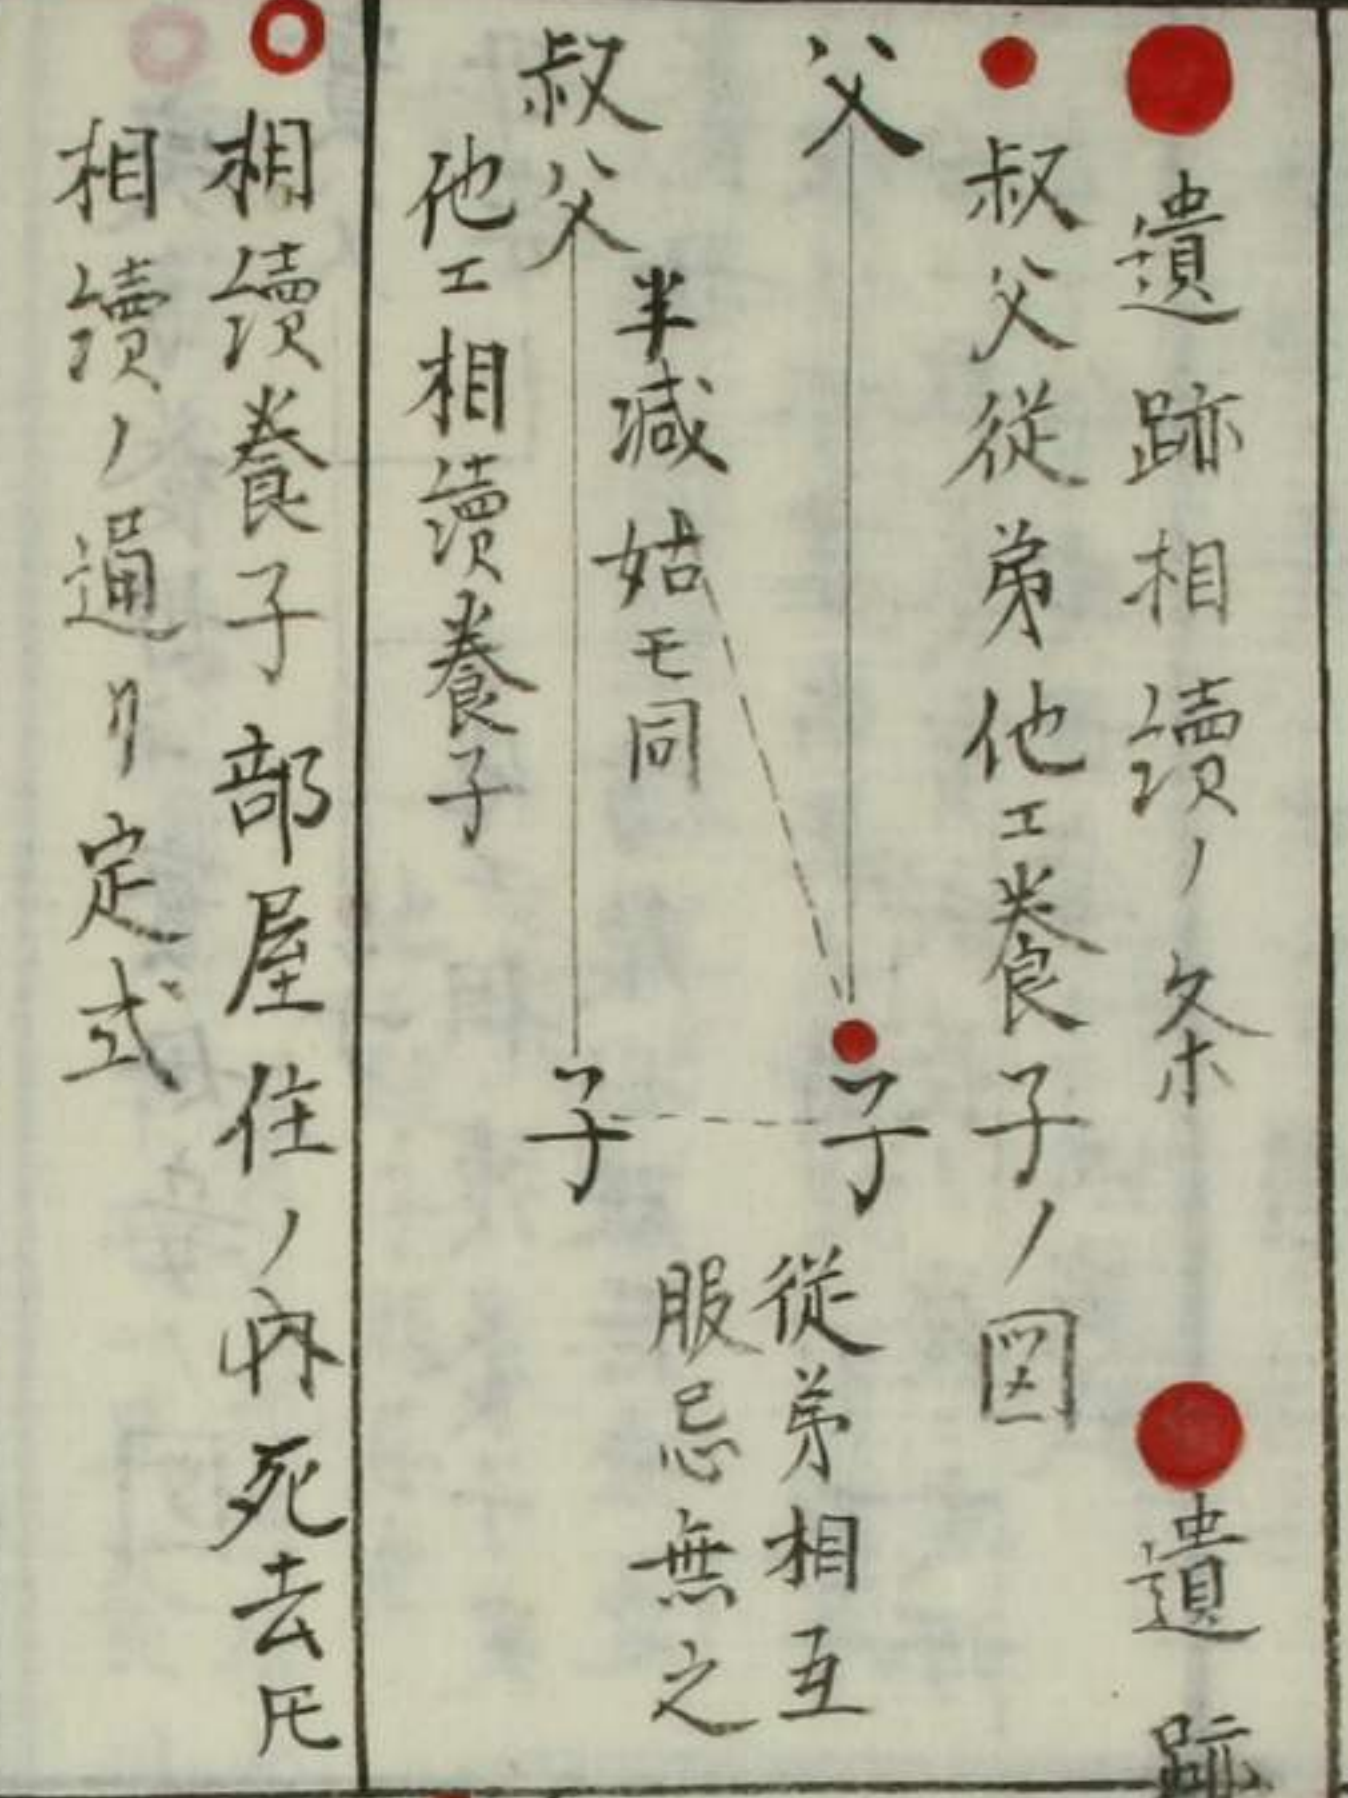 遺跡相續ノ条
遺跡
叔父從弟他エ養子ノ図
父
子
從弟相互
服忌無之
半減姑モ同
叔父
子
他エ相續養子
相續養子部屋住ノ内死去𪜈
相續ノ通リ定式